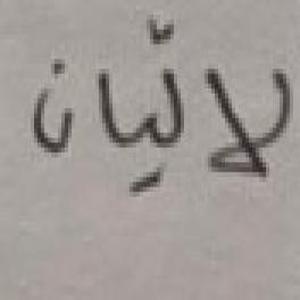 لا ليّان